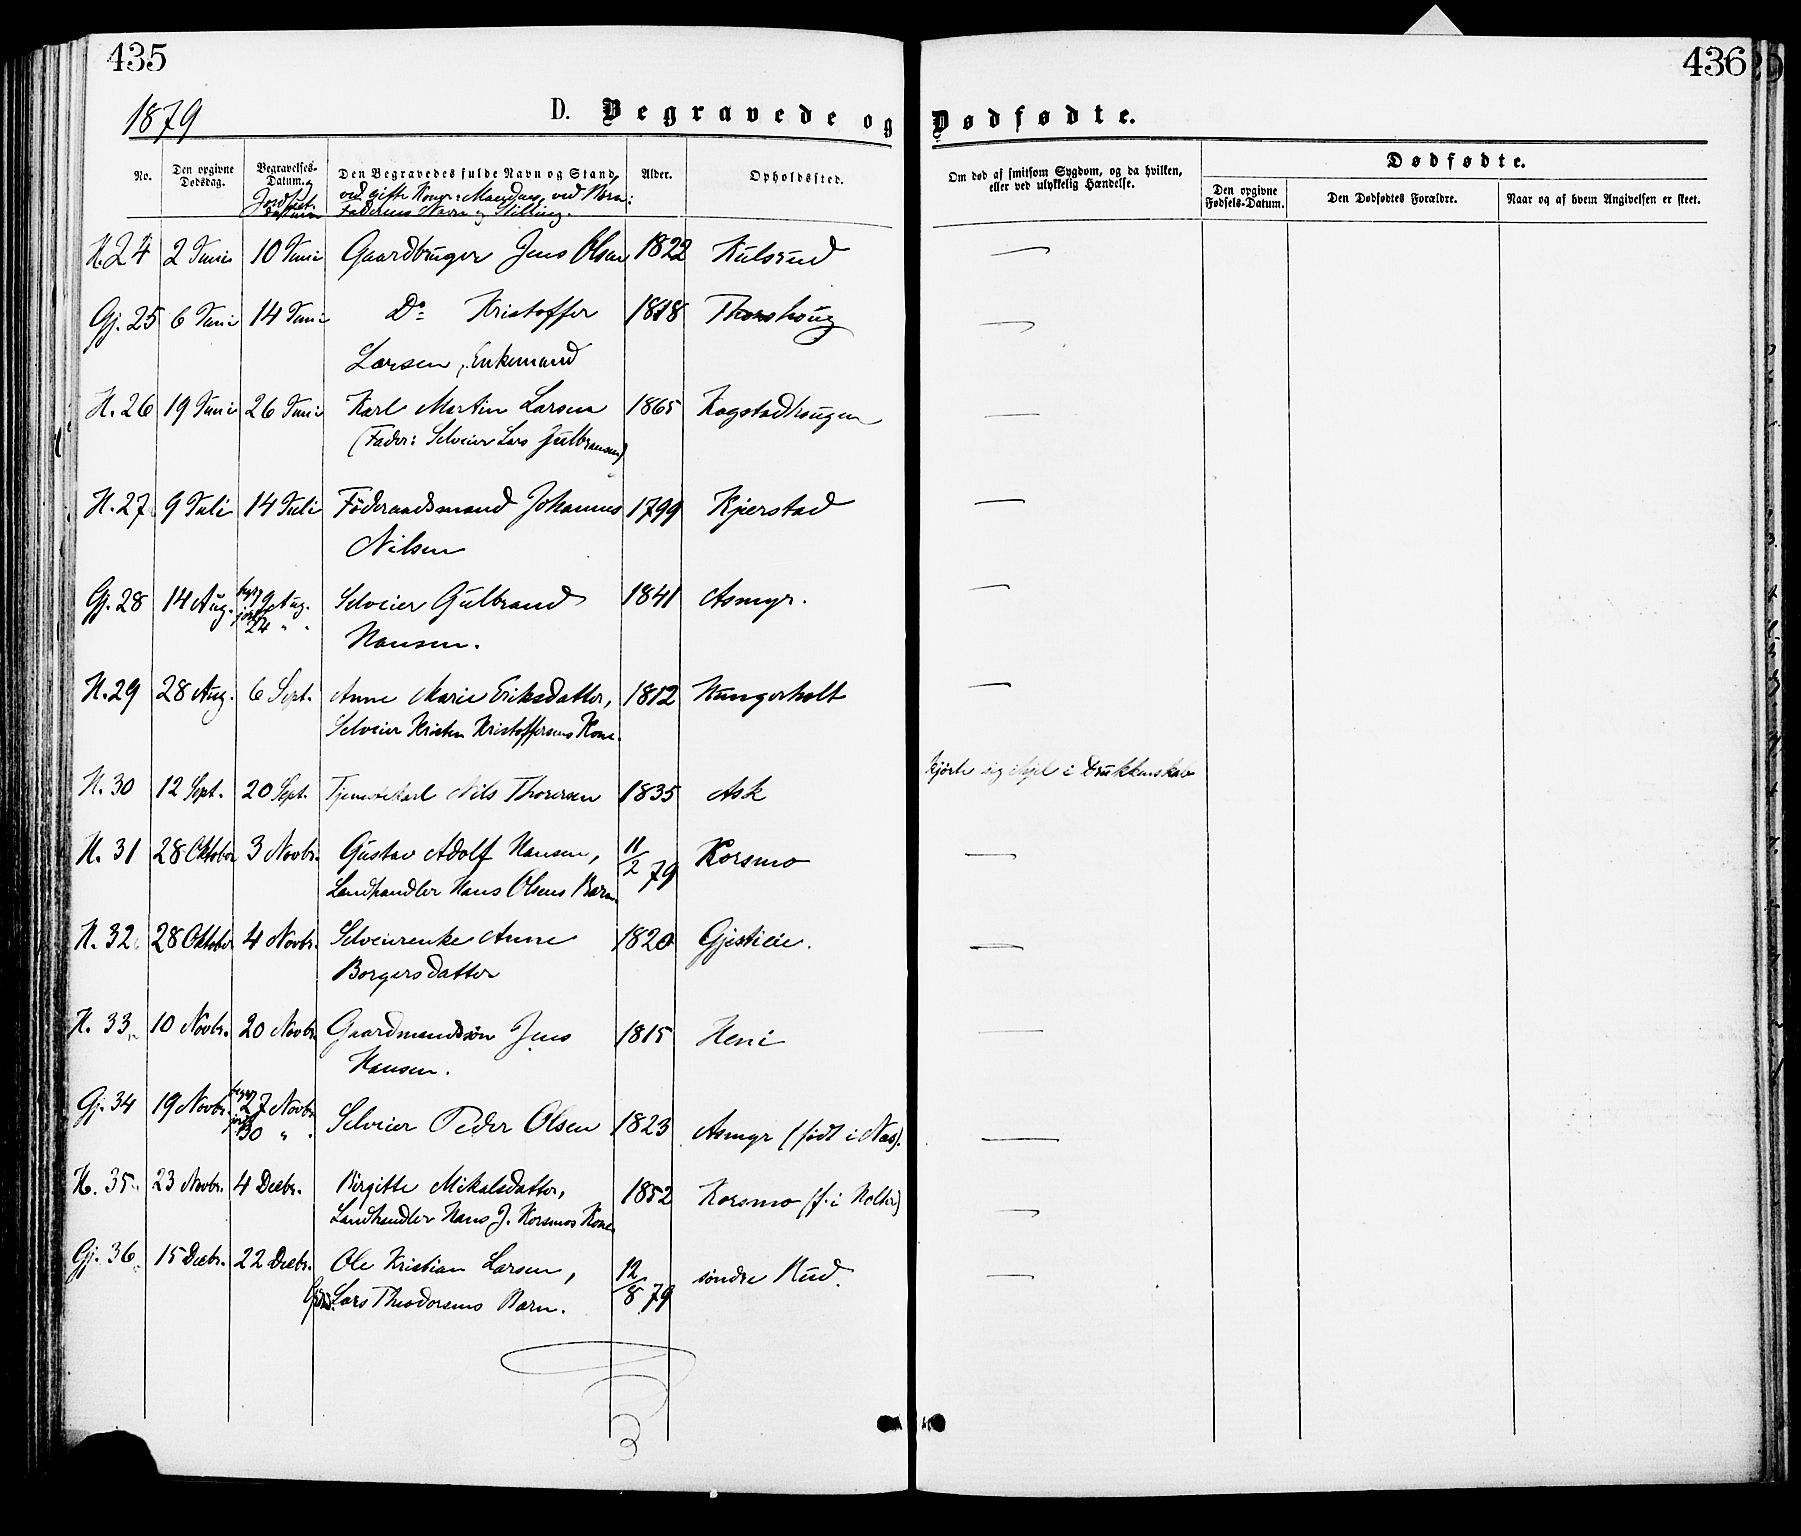 435
436
1879
D. Begravede og Dødfødte.
No.
Den opgivne Dødsdag.
Begravelses-Datum.
Jordfest. Datum
Den Begravedes fulde Navn og Stand
ved gifte Koner: Mandens, ved Børn:
Faderens Navn og Stilling.
Alder.
Opholdssted.
Om død af smitsom Sygdom, og da hvilken, eller ved ulykkelig Hændelse.
Dødfødte.
Den opgivne Fødsels-Datum.
Den Dødfødtes Forældre.
Naar og af hvem Angivelsen er skeet.
H. 24 2 Juni 10 Juni Gaardbruger Jens Olsen 1822 Kulsrud —
Gj. 25 6 Juni 14 Juni Do = Kristoffer 1818 Thorshoug —
Larsen, Enkemand
H. 26 19 Juni 26 Juni Karl Martin Larsen 1865 Kogstadhougen —
(Fader: Selveier Lars Gulbransen)
H. 27 9 Juli 14 Juli Föderaadsmand Johannes 1799 Kjerstad —
Nilsen
Gj. 28 14 Aug. begr. 19 Aug. Selveier Gulbrand 1841 Asmyr. —
jordf. 24 " "
Hansen.
H. 29 28 Aug. 6 Sept. Anne Marie Eriksdatter, 1812 Hungerholt —
Selveier Kristen Kristoffersens Kone.
H. 30 12 Sept. 20 Sept. Tjenestekarl Nils Thoresen 1835 Ask kjørte sig ihjel i Drukkenskab
H. 31 28 Oktober 3 Novbr. Gustav Adolf Hansen, 11/2 79 Korsmo —
Landhandler Hans Olsens Barn
H. 32 28 Oktober 4 Novbr. Selveierenke Anne 1820 Gjestiie. —
Borgersdatter
H. 33 10 Novbr. 20 Novbr. Gaardmandssön Jens 1815 Heni —
Hansen.
Gj. 34 19 Novbr. begr. 27 Novbr. Selveier Peder Olsen 1823 Asmyr (født i Næs). —
jordf. 30 " "
H. 35 23 Novbr. 4 Decbr. Birgitte Mikalsdatter, 1852 Korsmo (f. i Holter) —
Landhandler Hans J. Korsmos Kone
Gj. 36 15 Decbr. 22 Decbr. Ole Kristian Larsen, 12/8 79 søndre Rud. —
Gbr. Lars Theodorsens Barn.